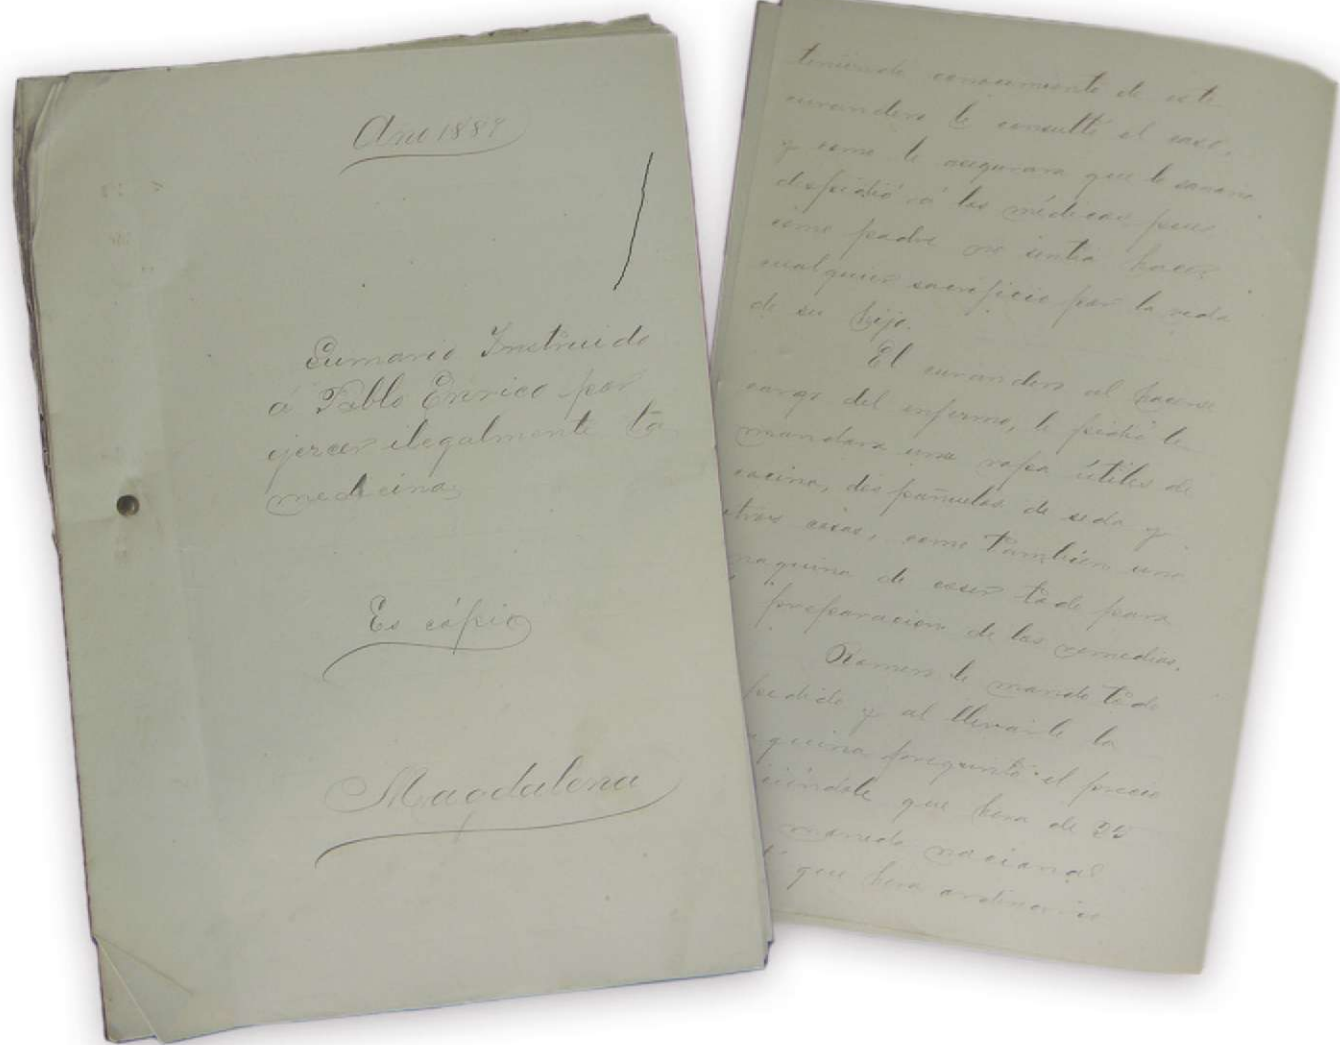 Año 1887
Sumario Instruido
á Pablo Enrico por
ejercer ilegalmente la
medicina
Es cópia
Magdalena
teniendo conocimiento de este
curandero le consultó el caso,
y como le asegurara que le sanaria
despidió á los médicos, pues
como padre no sintia hacer
cualquier sacrificio por la vida
de su hijo.
El curandero al hacerse
cargo del enfermo, le pidió le
mandara una ropa útiles de
cocina, dos pañuelos de seda y
otras cosas, como tambien una
maquina de coser todo para
preparacion de los remedios.
Ramon le mandó todo
pedido y al llevarle la
maquina preguntó el precio
diciéndole que hera de 25
moneda nacional
que hera ordinaria